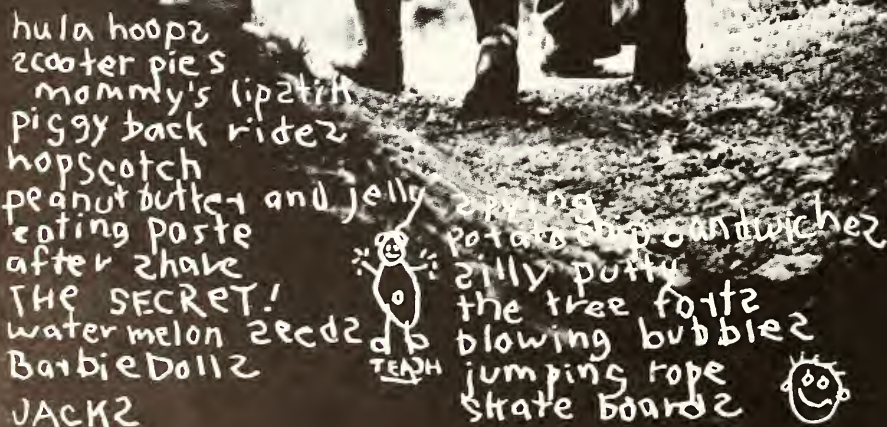 hula hoops
scooter pies
mommy's lipstik
piggy back rides
hopscotch
peanut butter and jelly
eating paste
after shave
THE SECRET!
water melon seeds
Barbie Dolls
JACKS
TEASH
spying
potato chip sandwiches
silly putty
the tree forts
blowing bubbles
jumping rope
skate boards